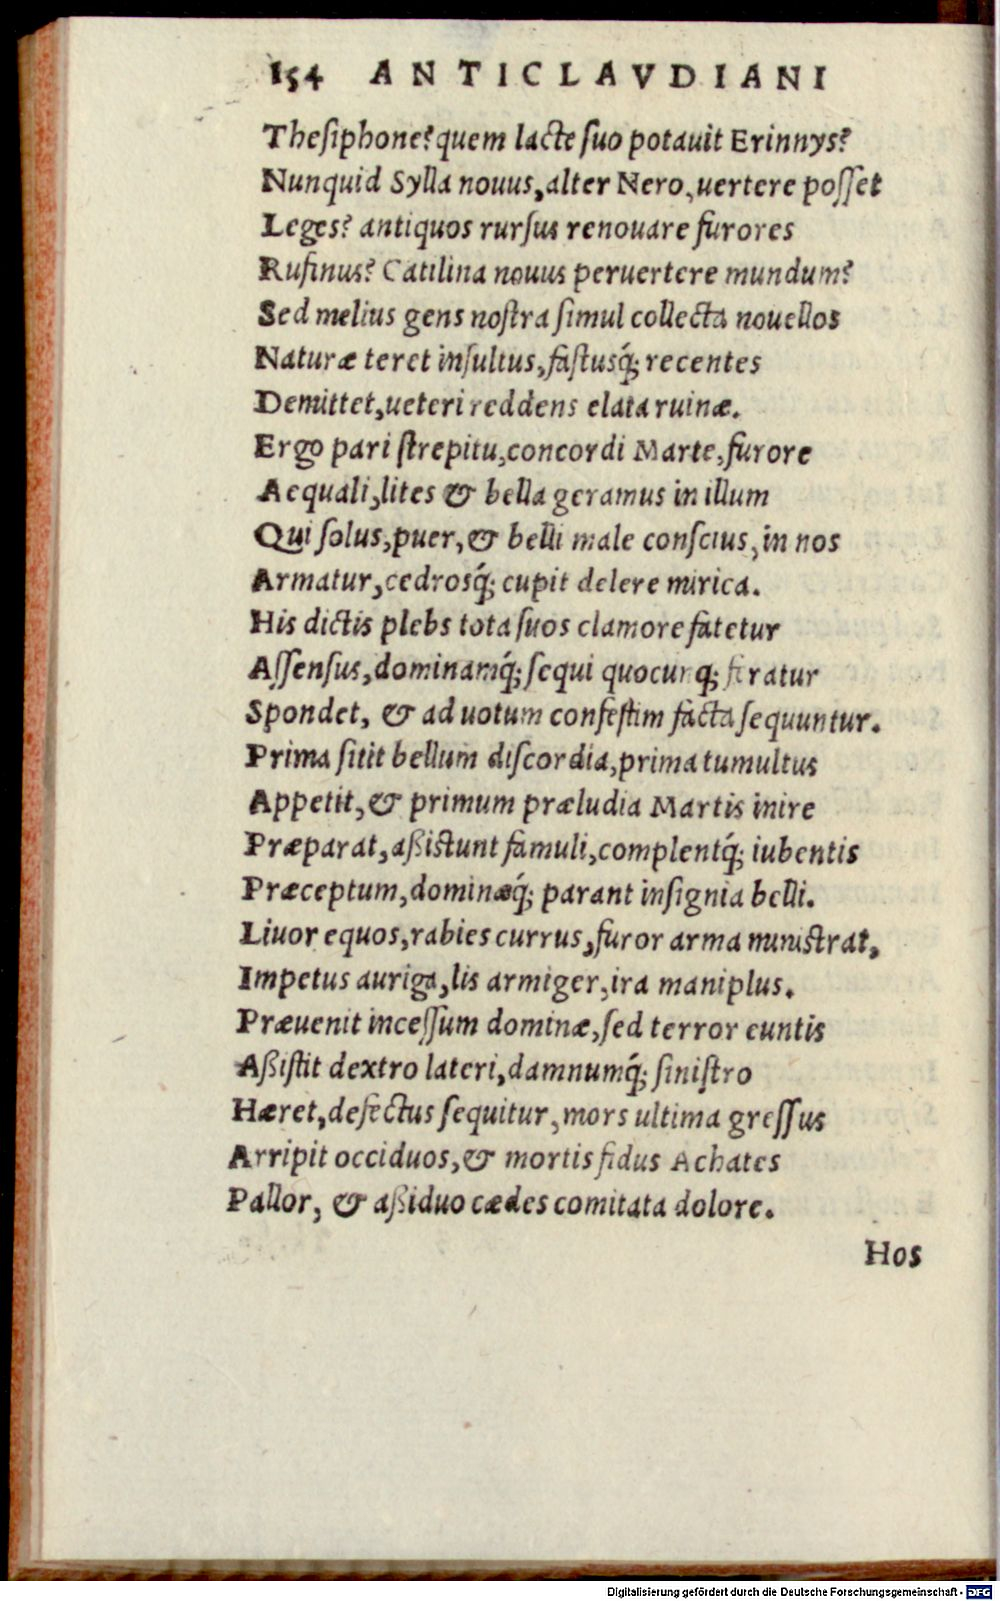 154 ANTICLAVDIANI
Theſiphone? quem lacte ſuo potauit Erinnys?
Nunquid Sylla nouus, alter Nero, uertere poſſet
Leges? antiquos rurſus renouare furores
Rufinus? Catilina nouus peruertere mundum?
Sed melius gens noſtra ſimul collecta nouellos
Naturæ teret inſultus, faſtusq́; recentes
Demittet, ueteri reddens elata ruinæ.
Ergo pari ſtrepitu, concordi Marte, furore
Aequali, lites & bella geramus in illum
Qui ſolus, puer, & belli male conſcius, in nos
Armatur, cedrosq́; cupit delere mirica.
His dictis plebs tota ſuos clamore fatetur
Aſſenſus, dominamq́; ſequi quocunq; feratur
Spondet, & ad uotum confeſtim facta ſequuntur.
Prima ſitit bellum diſcordia, prima tumultus
Appetit, & primum præludia Martis inire
Præparat, aßiſtunt famuli, complentq́; iubentis
Præceptum, dominæq́; parant inſignia belli.
Liuor equos, rabies currus, furor arma miniſtrat,
Impetus auriga, lis armiger, ira maniplus.
Præuenit inceſſum dominæ, ſed terror euntis
Aßiſtit dextro lateri, damnumq́; ſiniſtro
Hæret, defectus ſequitur, mors ultima greſſus
Arripit occiduos, & mortis fidus Achates
Pallor, & aßiduo cædes comitata dolore.
Hos
Digitalisierung gefördert durch die Deutsche Forschungsgemeinschaft - DFG